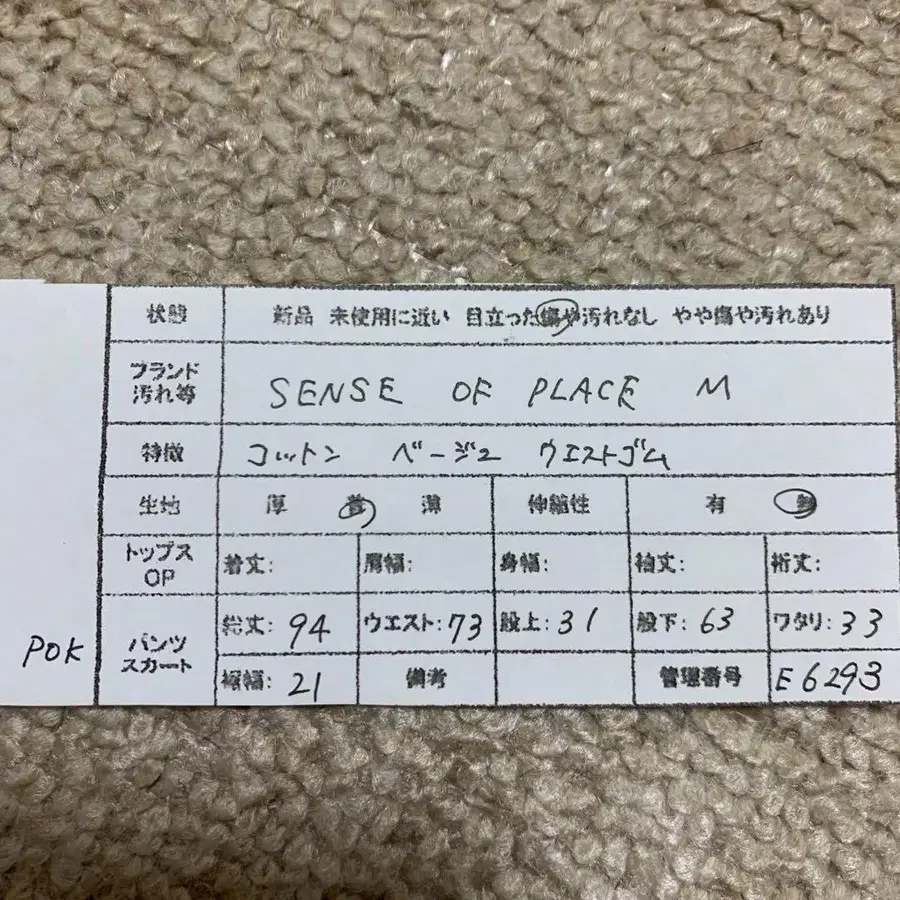 状態 新品 未使用に近い 目立った傷や汚れなし やや傷や汚れあり
ブランド
汚れ等 SENSE OF PLACE M
特徴 コットン ベージュ ウエストゴム
生地 厚 普 薄 伸縮性 有 無
トップス
OP 着丈: 肩幅: 身幅: 袖丈: 裄丈:
パンツ
スカート 総丈: 94 ウエスト: 73 股上: 31 股下: 63 ワタリ: 33
裾幅: 21 備考 管理番号 E6293
POK